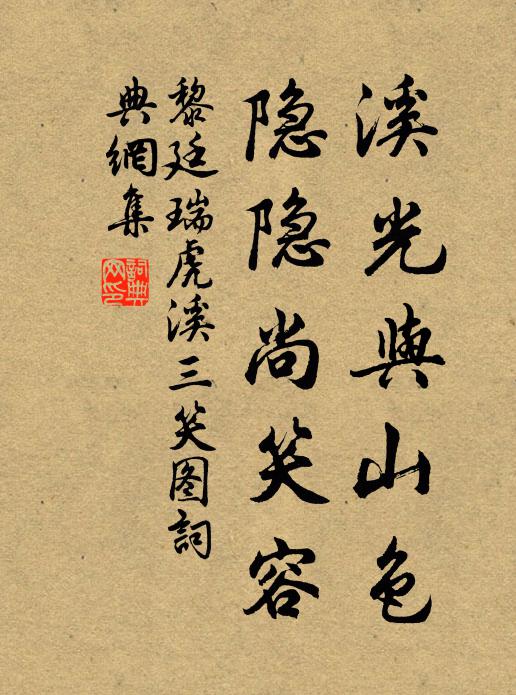 溪光與山色
隐隐尚笑容
黎廷瑞虎溪三笑图詞
典網集
詞典网印